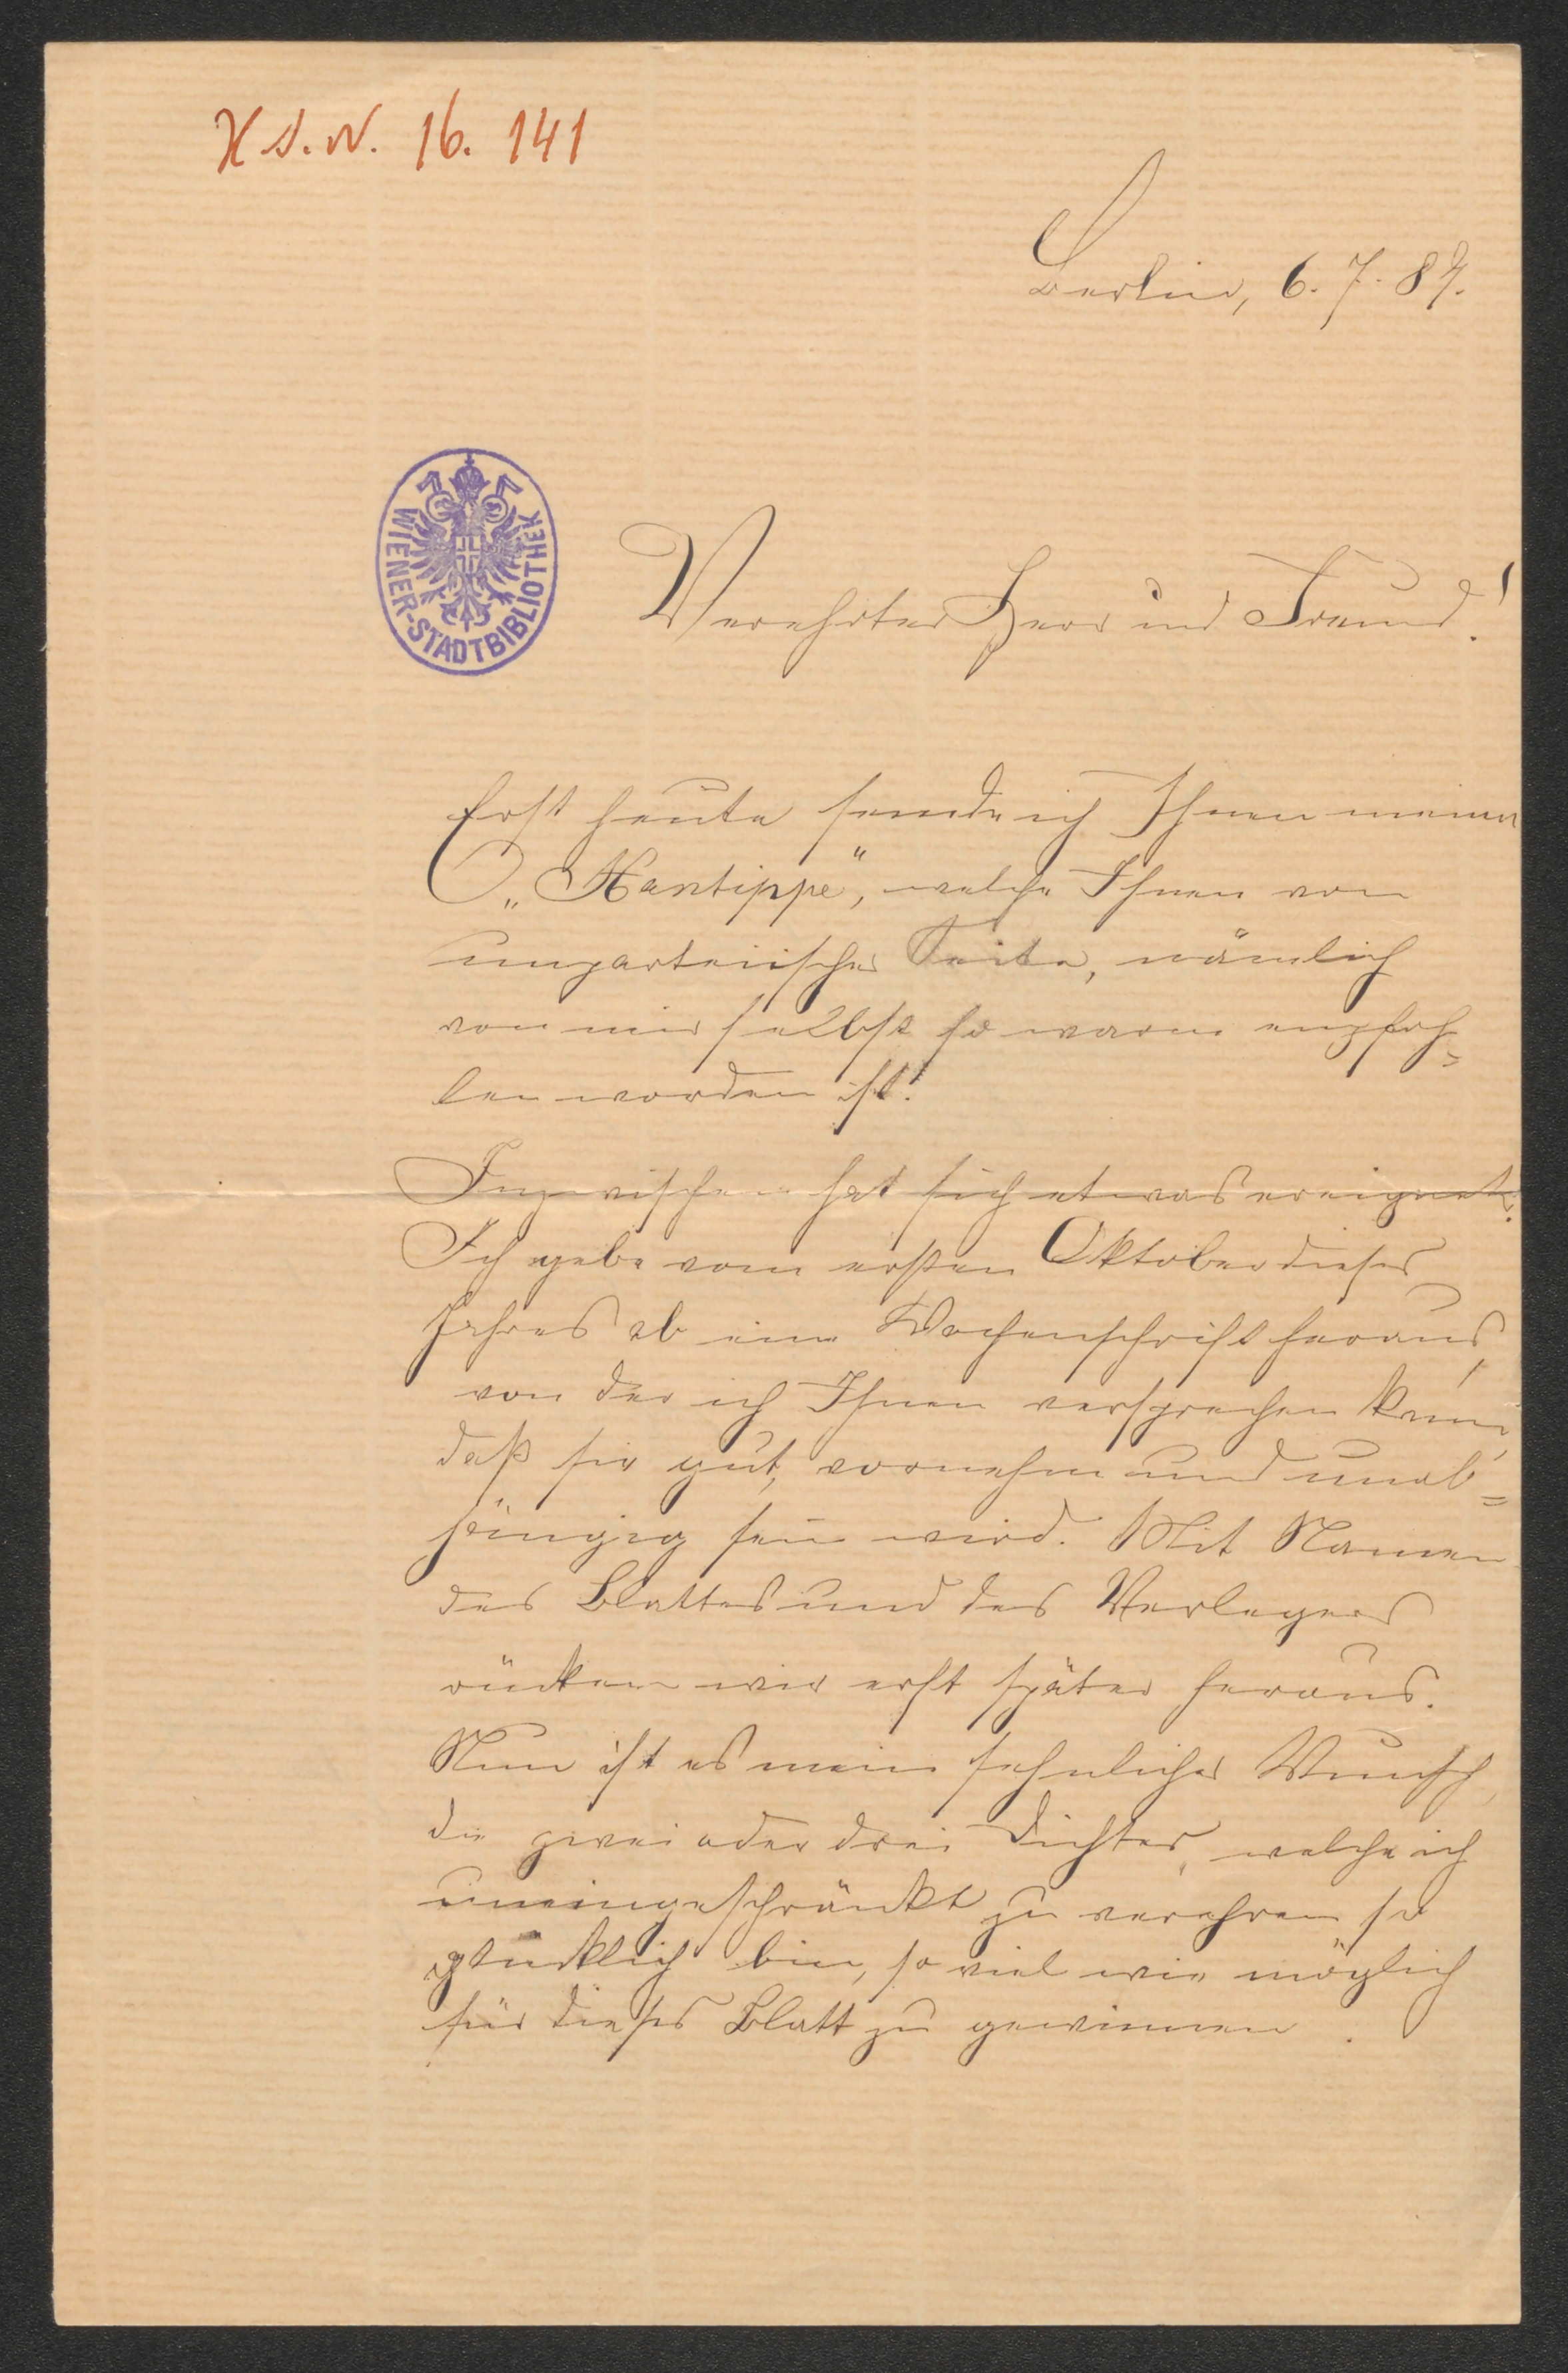 H.I.N. 16.141
Berlin, 6.7.84.
WIENER-STADTBIBLIOTHEK
Verehrter Herr und Freund!
Erst heute sende ich Ihnen meine
„Xantippe“, welche Ihnen von
unparteiischer Seite, nämlich
von mir selbst so warm empfoh-
len worden ist!
Inzwischen hat sich etwas ereignet.
Ich gebe vom ersten Oktober dieses
Jahres ab eine Wochenschrift heraus,
von der ich Ihnen versprechen kann,
daß sie gut, vornehm und unab=
hängig sein wird. Mit Namen
des Blattes und des Verlegers
rücken wir erst später heraus.
Nun ist es mein sehnlicher Wunsch,
die zwei oder drei Dichter, welche ich
uneingeschränkt zu verehren so
glücklich bin, so viel wie möglich
für dieses Blatt zu gewinnen.